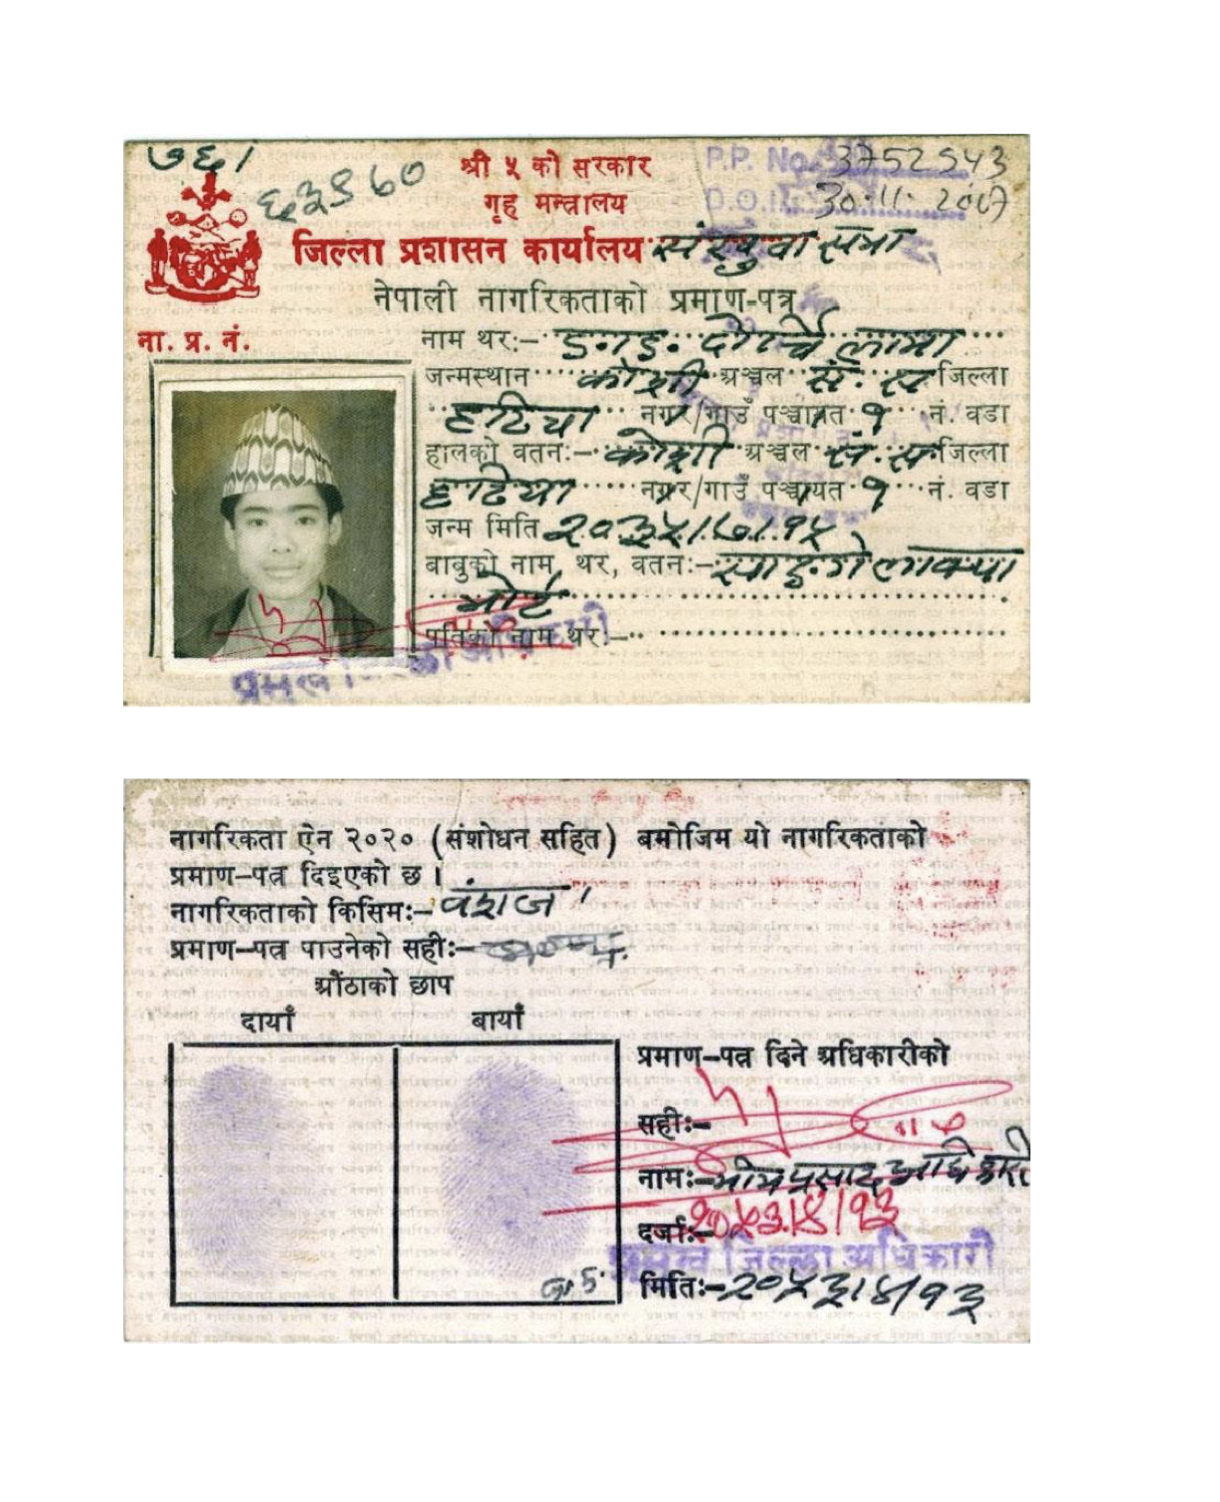 ७६।
६३९६०
श्री ५ को सरकार
P.P. No. 3752543
गृह मन्त्रालय
D.O.I. 30.11.2007
जिल्ला प्रशासन कार्यालय संखुवा सभा
नेपाली नागरिकताको प्रमाण-पत्र
ना. प्र. नं.
नाम थर:- ङगङ. दोर्चे लामा
जन्मस्थान कोशी अञ्चल सं. स जिल्ला
हटिया नगर/गाउँ पञ्चायत १ नं. वडा
हालको वतन:- कोशी अञ्चल सं. स जिल्ला
हटिया नगर/गाउँ पञ्चायत १ नं. वडा
जन्म मिति २०३५।७।१५
बाबुको नाम, थर, वतन:- साङगे लाक्पा
भोटे
पतिको नाम थर:-
प्रमुख जिल्ला अधिकारी
नागरिकता ऐन २०२० (संशोधन सहित) बमोजिम यो नागरिकताको
प्रमाण-पत्र दिइएको छ।
नागरिकताको किसिम:- वंशज
प्रमाण-पत्र पाउनेको सही:-
औंठाको छाप
दायाँ बायाँ
प्रमाण-पत्र दिने अधिकारीको
सही:-
नाम:- भीमप्रसाद अधिकारी
२०५३।४।१३
दर्जा:-
प्रमुख जिल्ला अधिकारी
मिति:- २०५३।४।१३